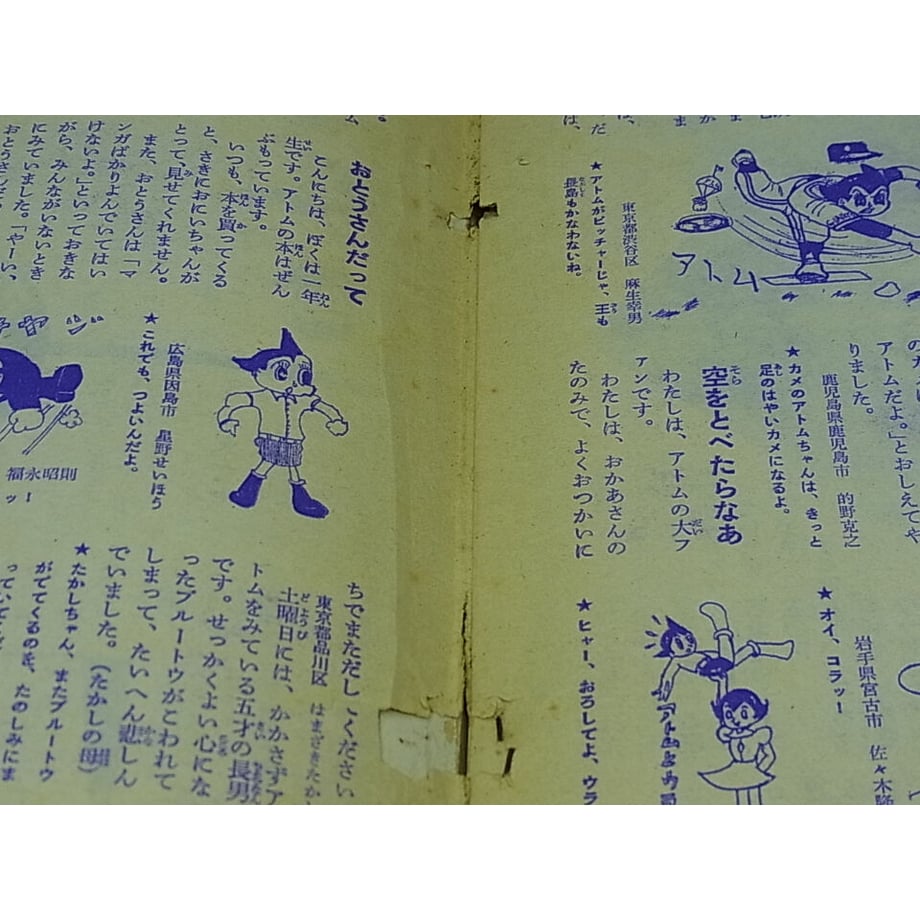 アトム
★アトムがピッチャーじゃ、王も
長島もかなわないね。
東京都渋谷区　麻生幸男
アトムだよ。」とおしえてや
りました。
鹿児島県鹿児島市　的野克之
★カメのアトムちゃんは、きっと
足のはやいカメになるよ。
空をとべたらなあ
わたしは、アトムの大フ
アンです。
わたしは、おかあさんの
たのみで、よくおつかいに
岩手県宮古市　佐々木
★オイ、コラッー
★ヒャー、おろしてよ、ウラ
アトムとウラ
おとうさんだって
こんにちは、ぼくは一年
生です。アトムの本はぜん
ぶもっています。
いつも、本を買ってくる
と、さきにおにいちゃんが
とって、見せてくれません。
また、おとうさんは「マ
ンガばかりよんでいてはい
けないよ。」といっておきな
がら、みんながいないとき
にみていました。「やーい、
広島県因島市　星野せいほう
★これでも、つよいんだよ。
福永昭則
ッー
ちでまただしてください
東京都品川区　はまざきたか
土曜日には、かかさずア
トムをみている五才の長男
です。せっかくよい心にな
ったプルートウがこわれて
しまって、たいへん悲しん
でいました。（たかしの母）
★たかしちゃん、またプルートウ
がでてくるのを、たのしみにま